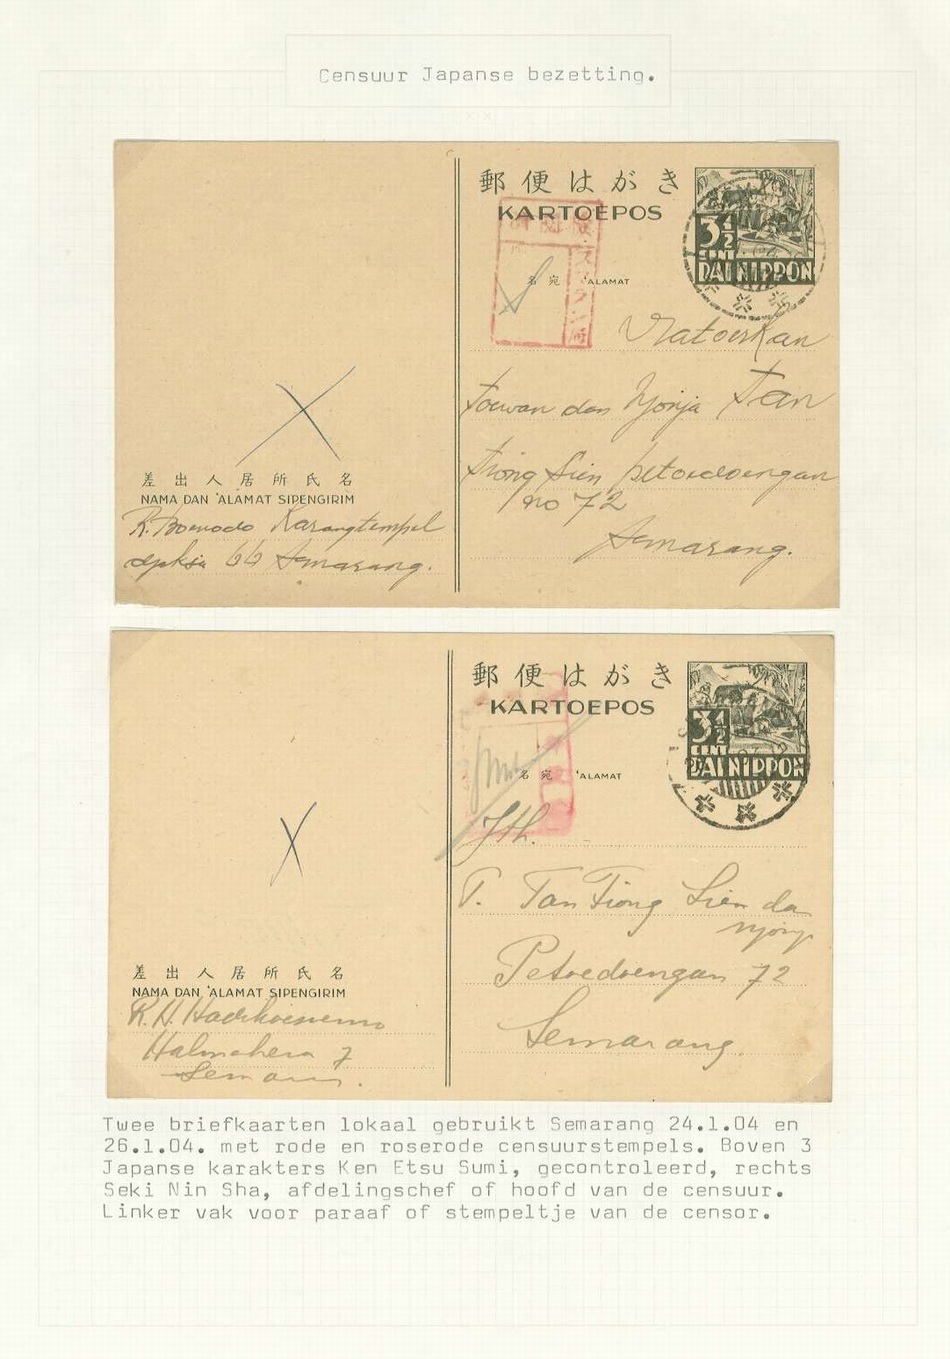 Censuur Japanse bezetting.
郵便はがき
KARTOEPOS
3½
CENT
DAI NIPPON
名宛 'ALAMAT
Katoerkan
toewan dan Njonja Tan
Tiong Sien petoedoengan
no 72
Semarang.
差出人居所氏名
NAMA DAN 'ALAMAT SIPENGIRIM
R. Karangtempel
66 Semarang.
郵便はがき
KARTOEPOS
3½
CENT
DAI NIPPON
名宛 'ALAMAT
Jth.
T. Tan Tiong Sien dan
njonja
Petoedoengan 72
Semarang.
差出人居所氏名
NAMA DAN 'ALAMAT SIPENGIRIM
R.H. Hadikoesoemo
Halmahera 7
Semarang.
Twee briefkaarten lokaal gebruikt Semarang 24.1.04 en
26.1.04. met rode en roserode censuurstempels. Boven 3
Japanse karakters Ken Etsu Sumi, gecontroleerd, rechts
Seki Nin Sha, afdelingschef of hoofd van de censuur.
Linker vak voor paraaf of stempeltje van de censor.